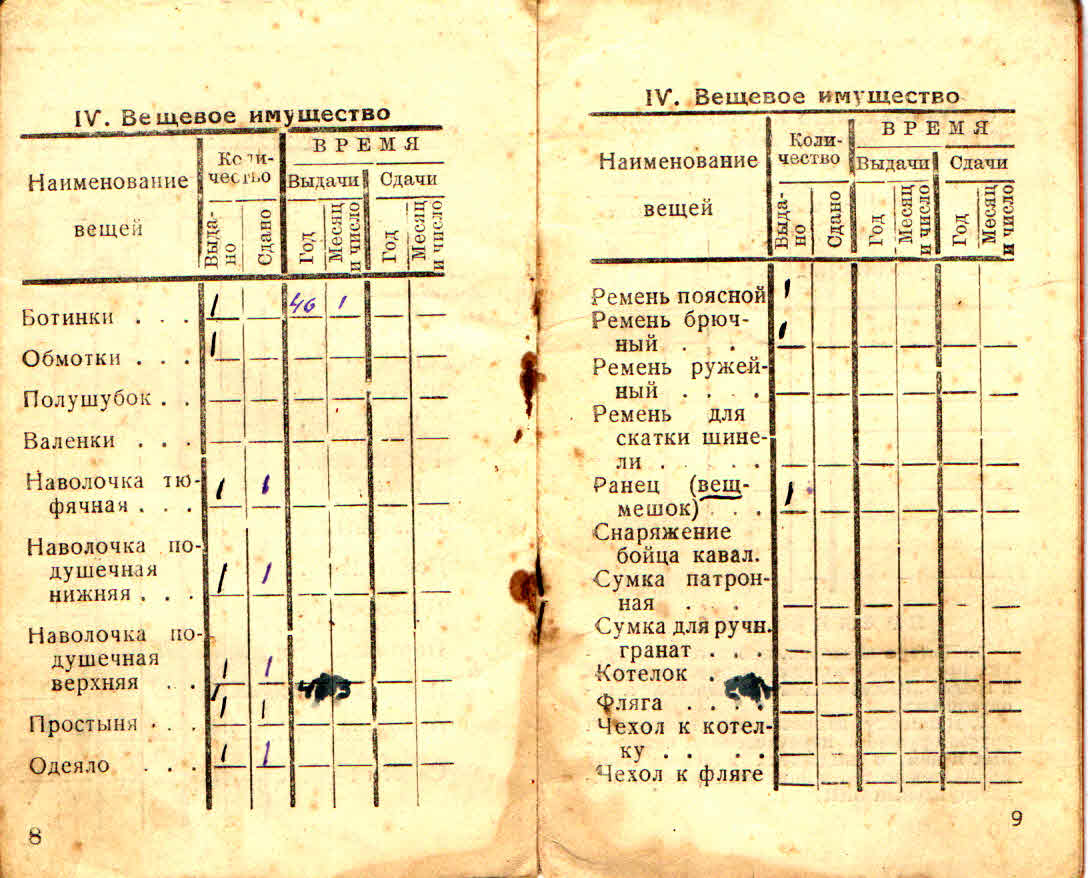 IV. Вещевое имущество
Наименование вещей
Количество
ВРЕМЯ
Выдачи
Сдачи
Выдано
Сдано
Год
Месяц и число
Год
Месяц и число
Ботинки . . . 1 46 1
Обмотки . . . 1
Полушубок . .
Валенки . . .
Наволочка тю-
фячная . . . 1 1
Наволочка по-
душечная
нижняя . . . 1 1
Наволочка по-
душечная
верхняя . . 1 1
Простыня . . . 1 1
Одеяло . . . 1 1
8
IV. Вещевое имущество
Наименование вещей
Коли-
чество
ВРЕМЯ
Выдачи
Сдачи
Выда-
но
Сдано
Год
Месяц
и число
Год
Месяц
и число
Ремень поясной 1
Ремень брюч-
ный . . . 1
Ремень ружей-
ный . . . .
Ремень для
скатки шине-
ли . . . . .
Ранец (вещ-
мешок) . . . 1
Снаряжение
бойца кавал.
Сумка патрон-
ная . . .
Сумка для ручн.
гранат . . .
Котелок .
Фляга . . . .
Чехол к котел-
ку . . . .
Чехол к фляге
9